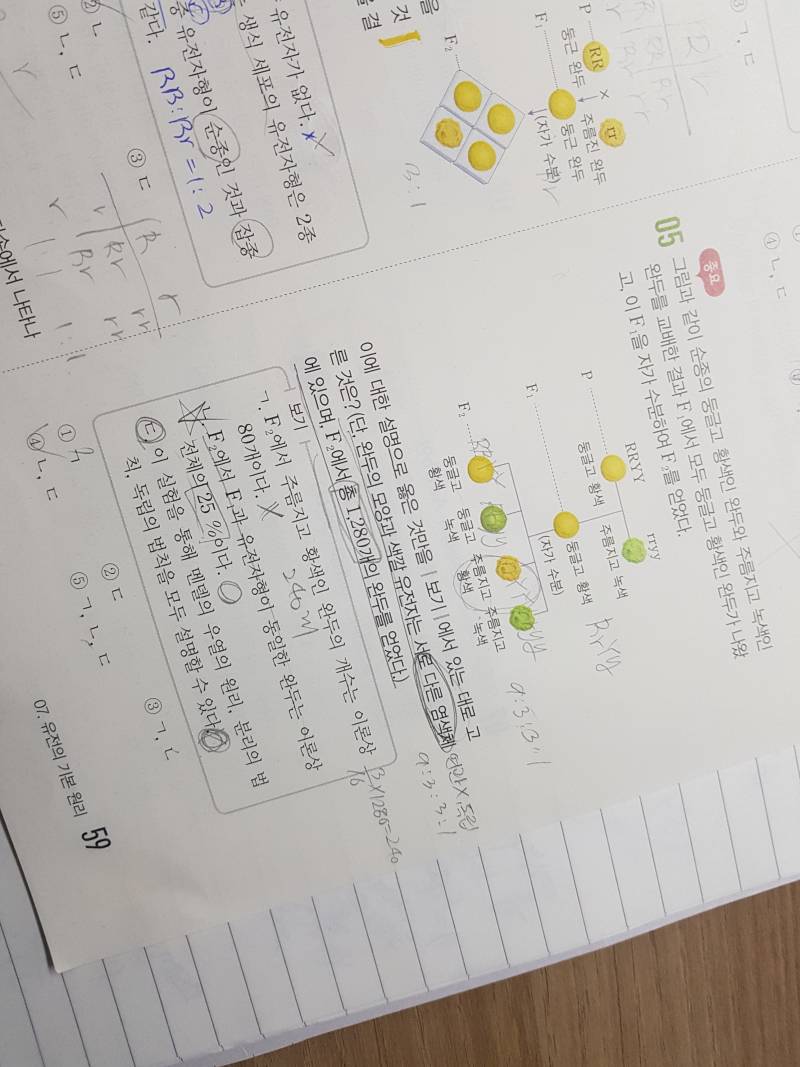 ③ ㄱ, ㄷ
P
RR
×
rr
둥근 완두
주름진 완두
F₁
둥근 완두
(자가 수분)
F₂
3 : 1
을
것
유전자가 없다.
생식 세포의 유전자형은 2종
유전자형이 순종인 것과 잡종
같다.
RR : Rr = 1 : 2
② ㄴ
③ ㄷ
⑤ ㄴ, ㄷ
R
r
r
Rr
rr
r
Rr
rr
1 : 1
1 : 1
손에서 나타나
④ ㄴ, ㄷ
중요
05 그림과 같이 순종의 둥글고 황색인 완두와 주름지고 녹색인
완두를 교배한 결과 F₁에서 모두 둥글고 황색인 완두가 나왔
고, 이 F₁을 자가 수분하여 F₂를 얻었다.
RRYY
rryy
P
둥글고 황색
주름지고 녹색
RrYy
F₁
둥글고 황색
(자가 수분)
F₂
둥글고 황색
둥글고 녹색
주름지고 황색
주름지고 녹색
9 : 3 : 3 : 1
이에 대한 설명으로 옳은 것만을 |보기|에서 있는 대로 고
른 것은? (단, 완두의 모양과 색깔 유전자는 서로 다른 염색체
에 있으며, F₂에서 총 1,280개의 완두를 얻었다.)
연관 X 독립
9 : 3 : 3 : 1
보기
ㄱ. F₂에서 주름지고 황색인 완두의 개수는 이론상
80개이다. X
240개
3/16 × 1280 = 240
ㄴ. F₂에서 F₁과 유전자형이 동일한 완두는 이론상
전체의 25 %이다. ○
ㄷ. 이 실험을 통해 멘델의 우열의 원리, 분리의 법
칙, 독립의 법칙을 모두 설명할 수 있다.
① ㄱ
② ㄷ
③ ㄱ, ㄴ
④ ㄴ, ㄷ
⑤ ㄱ, ㄴ, ㄷ
07. 유전의 기본 원리 59